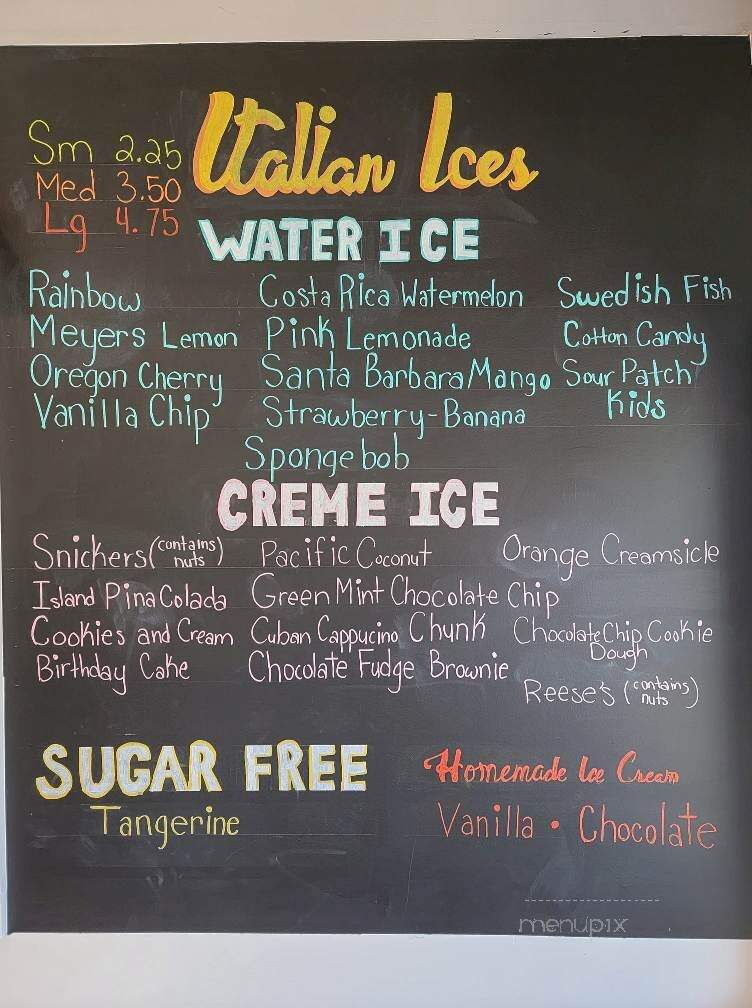 Italian Ices
Sm 2.25
Med 3.50
Lg 4.75
WATER ICE
Rainbow
Meyers Lemon
Oregon Cherry
Vanilla Chip
Costa Rica Watermelon
Pink Lemonade
Santa Barbara Mango
Strawberry-Banana
Spongebob
Swedish Fish
Cotton Candy
Sour Patch
Kids
CREME ICE
Snickers (contains
nuts)
Island Pina Colada
Cookies and Cream
Birthday Cake
Pacific Coconut
Green Mint Chocolate Chip
Cuban Cappucino Chunk
Chocolate Fudge Brownie
Orange Creamsicle
Chocolate Chip Cookie
Dough
Reese's (contains
nuts)
SUGAR FREE
Tangerine
Homemade Ice Cream
Vanilla • Chocolate
menupix